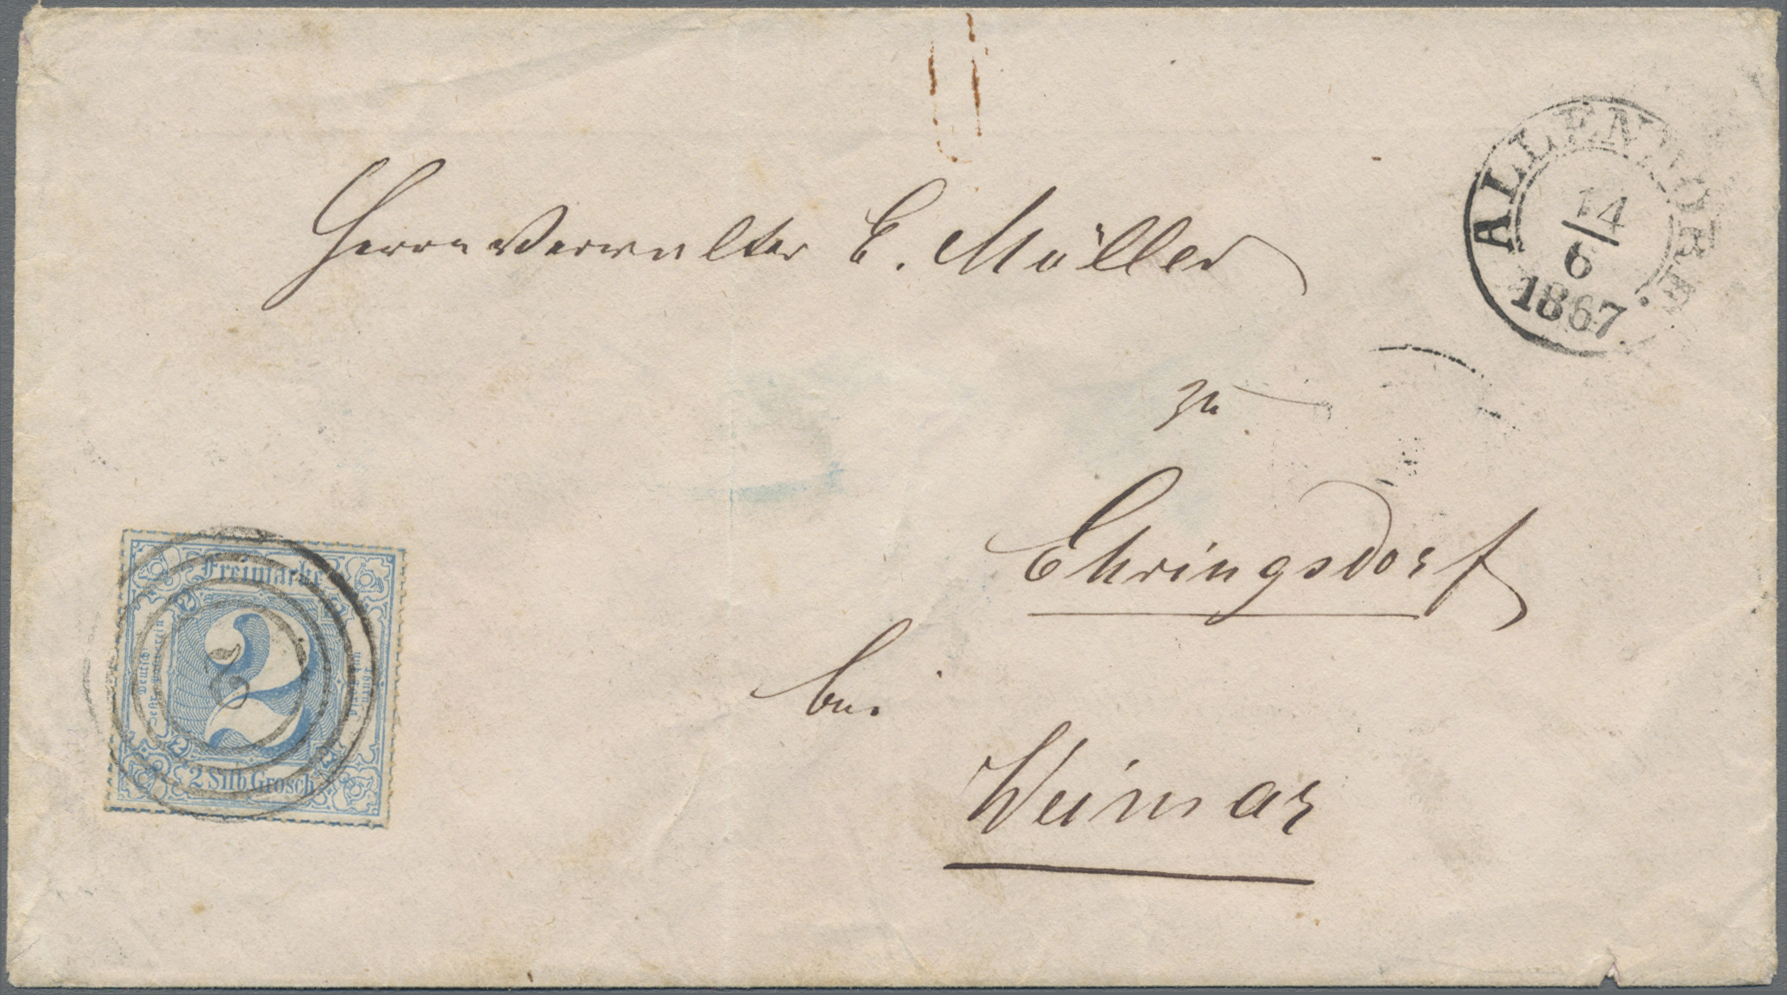 Herrn Verwalter E. Müller
ALLENDORF
14
6
1867.
zu
Ehringsdorf
bei
Weimar
Freimarke
Deutsch
2
2 Silb. Grosch.